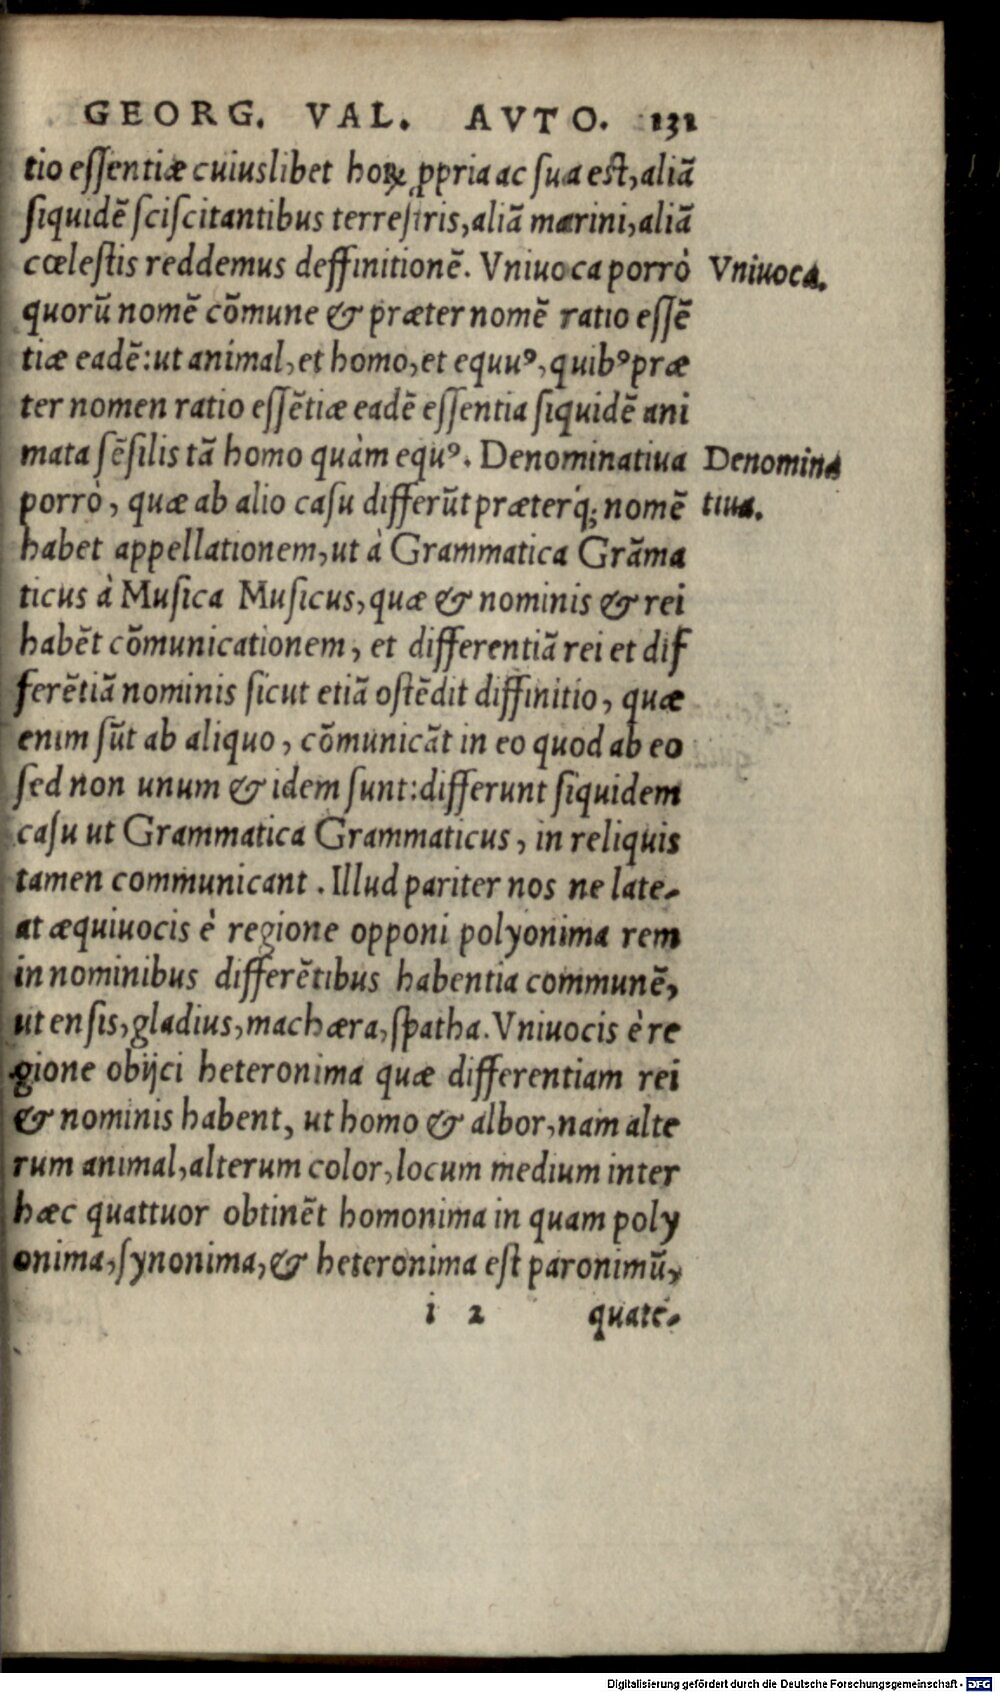 GEORG. VAL. AVTO. 131
tio eſſentiæ cuiuslibet hoꝝ ꝓpria ac ſua est, aliã
ſiquidẽ ſciſcitantibus terreſtris, aliã marini, aliã
cœleſtis reddemus deffinitionẽ. Vniuoca porrò
Vniuoca.
quorũ nomẽ cõmune & præter nomẽ ratio eſſẽ
tiæ eadẽ: ut animal, et homo, et equuꝰ, quibꝰ præ
ter nomen ratio eſſẽtiæ eadẽ eſſentia ſiquidẽ ani
mata ſẽſilis tã homo quàm equꝰ. Denominatiua
Denomina
porrò, quæ ab alio caſu differũt præterq́; nomẽ
tiua.
habet appellationem, ut à Grammatica Grãma
ticus à Muſica Muſicus, quæ & nominis & rei
habẽt cõmunicationem, et differentiã rei et dif
ferẽtiã nominis ſicut etiã oſtẽdit diffinitio, quæ
enim ſũt ab aliquo, cõmunicãt in eo quod ab eo
ſed non unum & idem ſunt: differunt ſiquidem
caſu ut Grammatica Grammaticus, in reliquis
tamen communicant. Illud pariter nos ne late-
at æquiuocis è regione opponi polyonima rem
in nominibus differẽtibus habentia communẽ,
ut enſis, gladius, machæra, ſpatha. Vniuocis è re
gione obijci heteronima quæ differentiam rei
& nominis habent, ut homo & albor, nam alte
rum animal, alterum color, locum medium inter
hæc quattuor obtinẽt homonima in quam poly
onima, ſynonima, & heteronima eſt paronimũ,
i 2 quate-
Digitalisierung gefördert durch die Deutsche Forschungsgemeinschaft - DFG